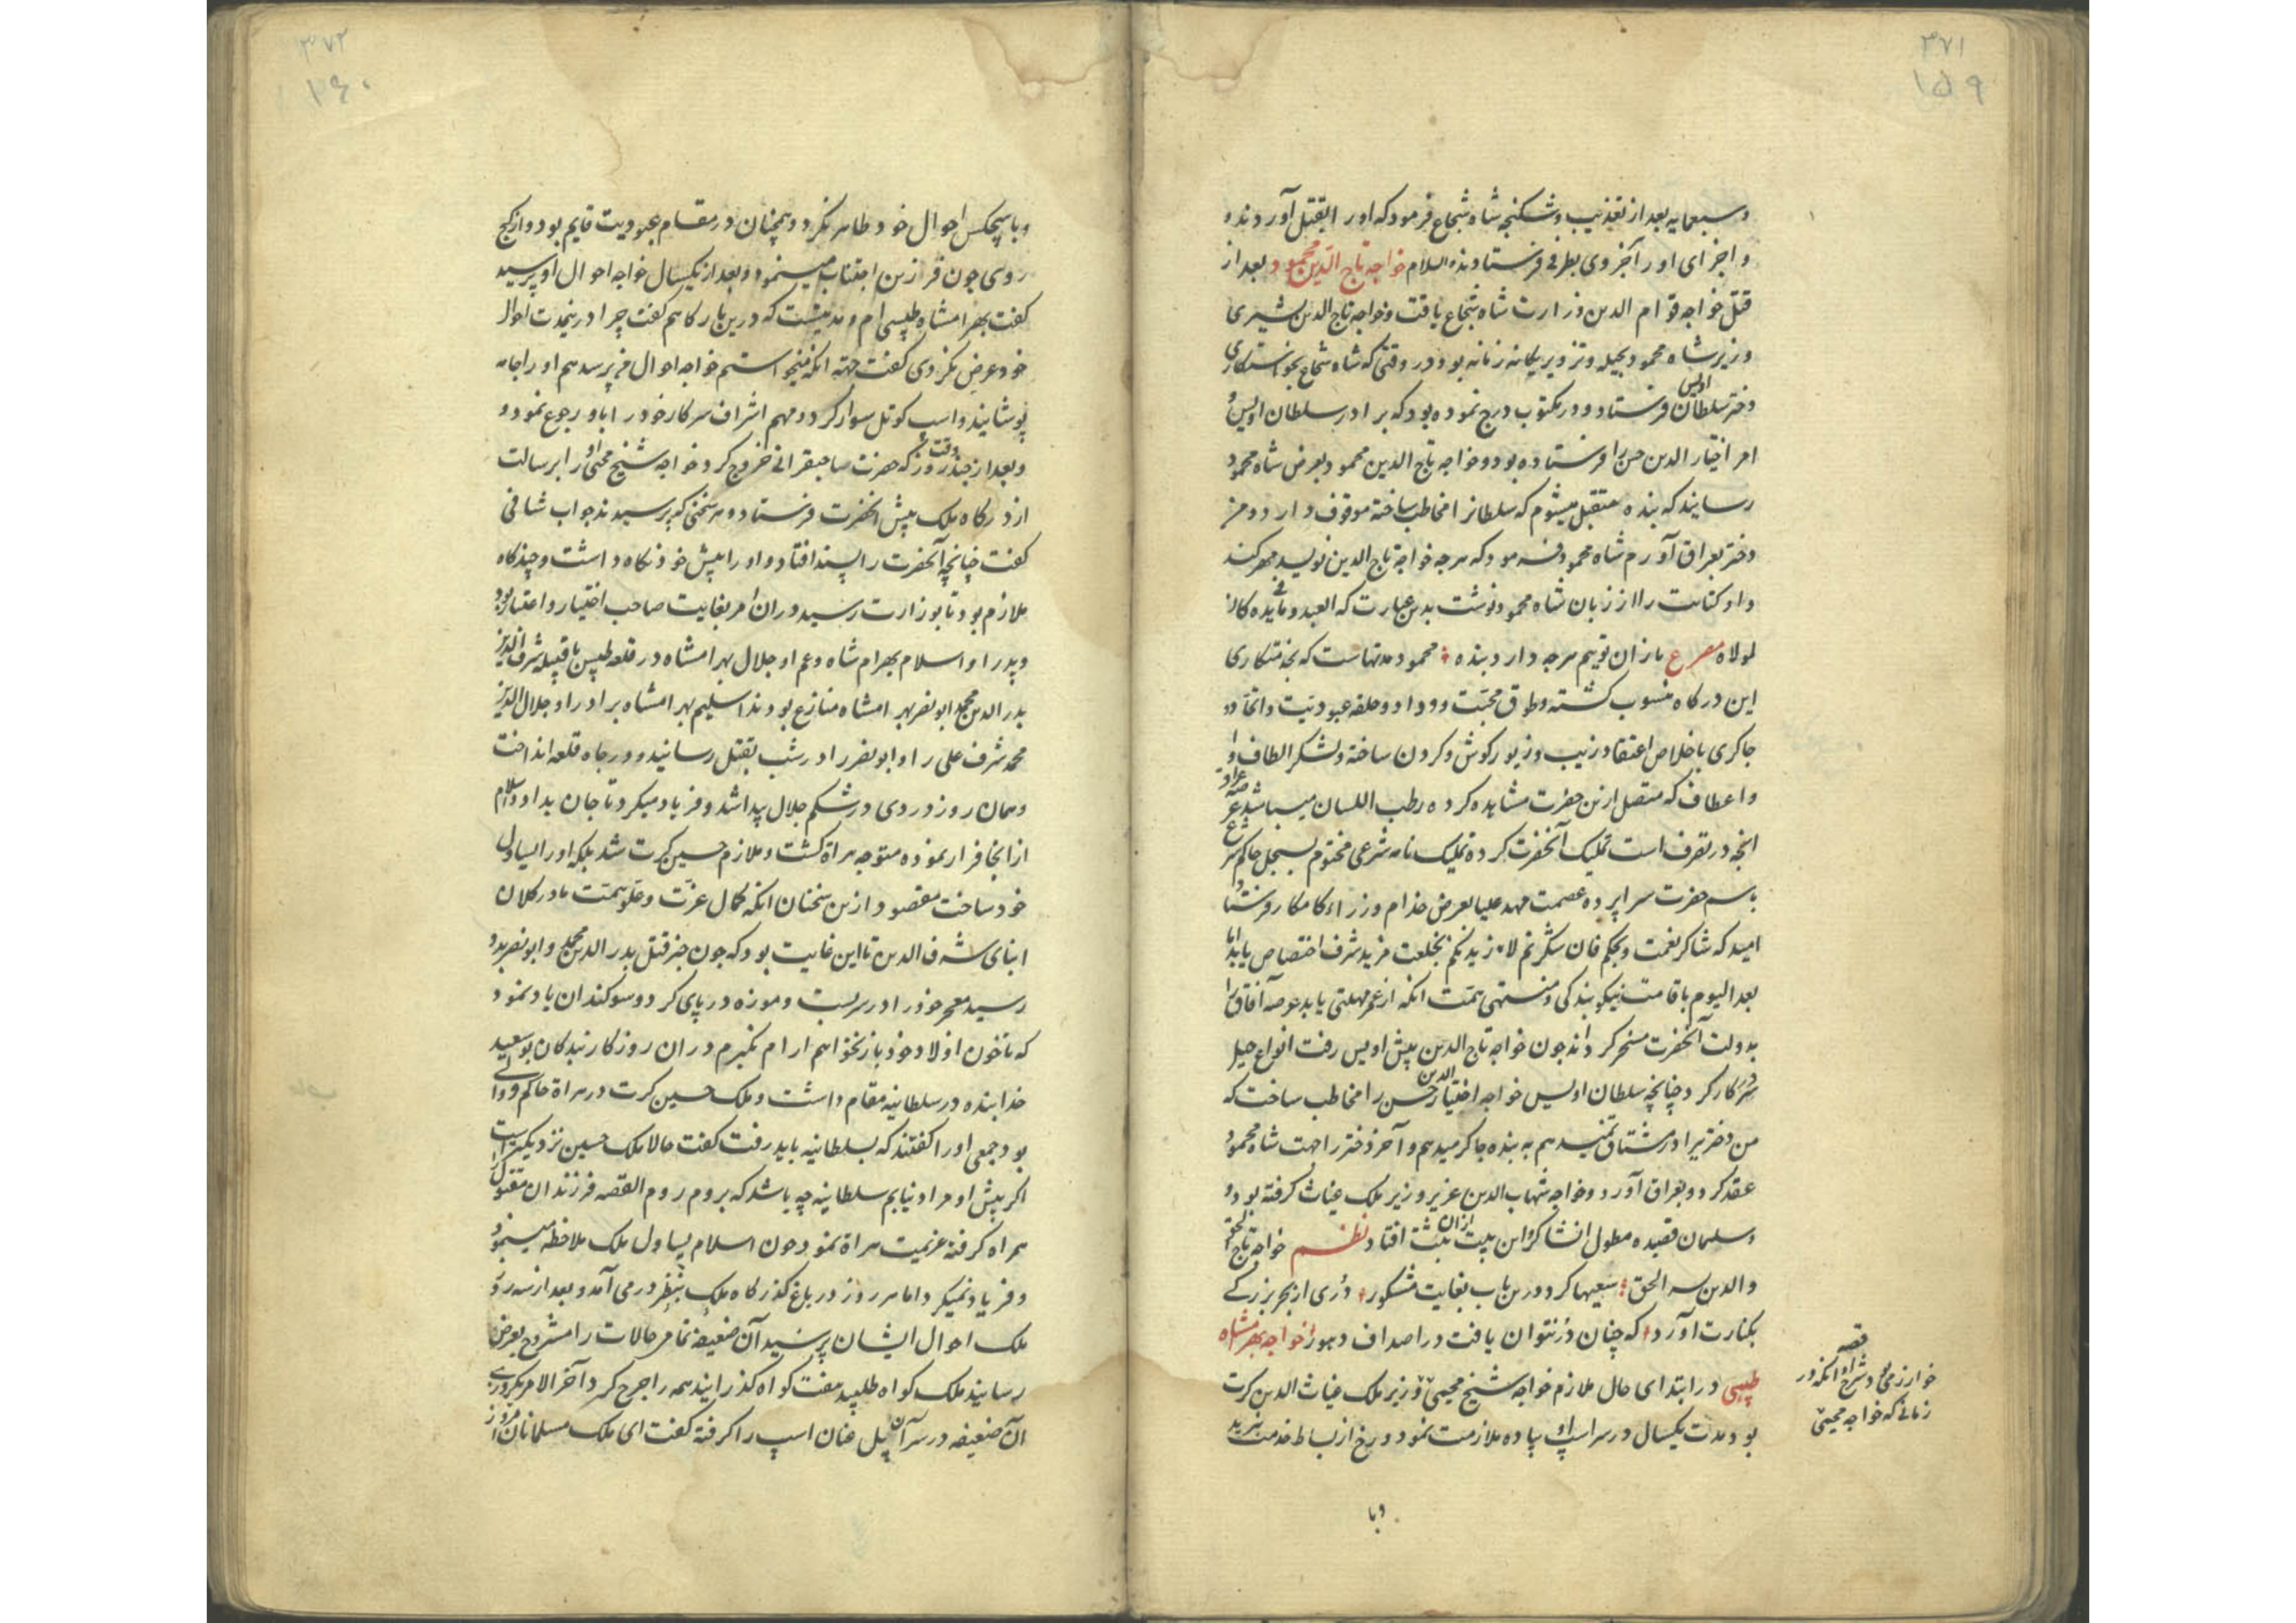 ۳۷۱
۱۵۹
و سبعمایه بعد از تعذیب و شکنجه شاه شجاع فرمود که او را بقتل آوردند و
و اجزای او را هر جزوی بطرفی فرستادند والسلام خواجه تاج الدین محمود بعد از
قتل خواجه قوام الدین وزارت شاه شجاع یافت و خواجه تاج الدین مشیری
وزیر شاه محمود بحیله و تزویر یکانه زمانه بود در وقتی که شاه شجاع بخواستکاری
دختر سلطان اویس فرستاد و در مکتوب درج نموده بود که برادر سلطان اویس و
امر اختیار الدین حسن را فرستاده بود و خواجه تاج الدین محمود بعرض شاه محمود
رسانید که بنده متقبل میشوم که سلطانرا مخاطب ساخته موقوف دارد و من
دختر بعراق آورم شاه محمود فرمود که هرچه خواجه تاج الدین نویسد مهر کنند
و او کتابت را از زبان شاه محمود نوشت بدین عبارت که العبد و ما فی یده کان
لمولاه مصرع ما زان توییم هرچه دارد بنده محمود مدتهاست که بخدمتکاری
این درکاه منسوب کشته و طوق محبت و وداد و حلقه عبودیت و اتحاد و
چاکری باخلاص اعتقاد زیب و زیور کوش و کردن ساخته و لشکر الطاف و
و اعطاف که متصل ازین حضرت مشاهده کرده رطب اللسان میباشد
انچه در تصرف است تملیک آنحضرت کرده تملیک نامه شرعی مختوم بسجل حاکم شرع
باسم حضرت سراپرده عصمت مهد علیا بعرض خدام وزراء کامکار فرستاد
امید که شاکر نعمت و بحکم فان شکرتم لازیدنکم بخلعت مزید شرف اختصاص یابد اما
بعد الیوم باقامت نیکو بندکی و منتهی همت انکه از عمر مهلتی یابد عرصه آفاق را
بدولت آنحضرت مسخر کرداند چون خواجه تاج الدین پیش اویس رفت انواع حیل
در کار کرد چنانچه سلطان اویس خواجه اختیار الدین حسن را مخاطب ساخت که
من دختر برادر مشتاق نمیدهم به بنده چاکر میدهم و آخر دختر را جهت شاه محمود
عقد کرد و بعراق آورد و خواجه شهاب الدین عزیز وزیر ملک غیاث کرفته بود و
و سلمان قصیده مطول انشا کرد این بیت ازان ثبت افتاد نظم خواجه تاج الحق
والدین سر الحق سعیها کرد درین باب بغایت مشکور دری از بحر بزرکی
بکنارت آورد که چنان در نتوان یافت در اصداف دهور خواجه بهرامشاه
طبسی در ابتدای حال ملازم خواجه شیخ محیی وزیر ملک غیاث الدین کرت
بود مدت یکسال در سر اسپ او پیاده ملازمت نمود و رخ از بساط خدمت نبرید
قصه
خوارزمی بود شرح او انکه در
زمانی که خواجه محیی
وبا
۳۷۲
۱۶۰
و با هیچکس احوال خود ظاهر نکرد و همچنان در مقام عبودیت قایم بود و از کج
روی چون فرزین اجتناب مینمود و بعد از یکسال خواجه احوال او پرسید
کفت بهرامشاه طبسی ام و مدتیست که درین بارکاهم کفت چرا درینمدت احوال
خود عرض نکردی کفت جهة انکه میخواستم خواجه احوال من پرسد هم او را جامه
پوشانید و اسپ کوتل سوار کرد و مهم اشراف سرکار خود را باو رجوع نمود و
و بعد از چند روز وقت که حضرت صاحبقرانی خروج کرد خواجه شیخ محیی او را برسالت
از درکاه ملک پیش انحضرت فرستاد و هر سخنی که پرسیدند جواب شافی
کفت چنانچه آنحضرت را پسند افتاد و او را پیش خود نکاه داشت و چندکاه
ملازم بود تا بوزارت رسید و دران امر بغایت صاحب اختیار و اعتبار بود
و پدر او اسلام بهرام شاه و عم او جلال بهرامشاه در قلعه طبس با قبیله شرف الدین
بدر الدین محمد ابو نصر بهرامشاه منازع بودند اسلیم بهرامشاه برادر او جلال الدین
محمد شرف علی را و ابو نصر را در شب بقتل رسانید و در چاه قلعه انداخت
و همان روز دردی در شکم جلال پیدا شد و فریاد میکرد تا جان بداد و اسلام
از انجا فرار نموده متوجه هراة کشت و ملازم حسین کرت شد بلکه او را یساول
خود ساخت مقصود ازین سخنان انکه کمال عزت و علو همت مادر کلان
ابنای شرف الدین تا این غایت بود که چون خبر قتل بدر الدین محمد و ابو نصر بدو
رسید معجر خود را در سر بست و موزه در پای کرد و سوکندان یاد نمود
که تا خون اولاد خود باز نخواهم ارام نکیرم دران روزکار بندکان بوسعید
خدابنده در سلطانیه مقام داشت و ملک حسین کرت در هراة حاکم و والی
بود جمعی او را کفتند که بسلطانیه باید رفت کفت حالا ملک حسین نزدیکتر است
اکر پیش او مراد نیابم سلطانیه چه باشد که بروم روم القصه فرزندان مقتول را
همراه کرفته عزیمت هراة نمود چون اسلام یساول ملک ملاحظه مینمود
و فریاد نمیکرد اما هر روز در باغ کذرکاه ملک بنظر در می آمد و بعد از سه روز
ملک احوال ایشان پرسید آن ضعیفه تمام حالات را مشروح بعرض
رسانید ملک کواه طلبید هفت کواه کذرانید همه را جرح کرد آخر الامر یکروزی
آن ضعیفه در سر آن پل عنان اسپ را کرفته کفت ای ملک مسلمانان امروز